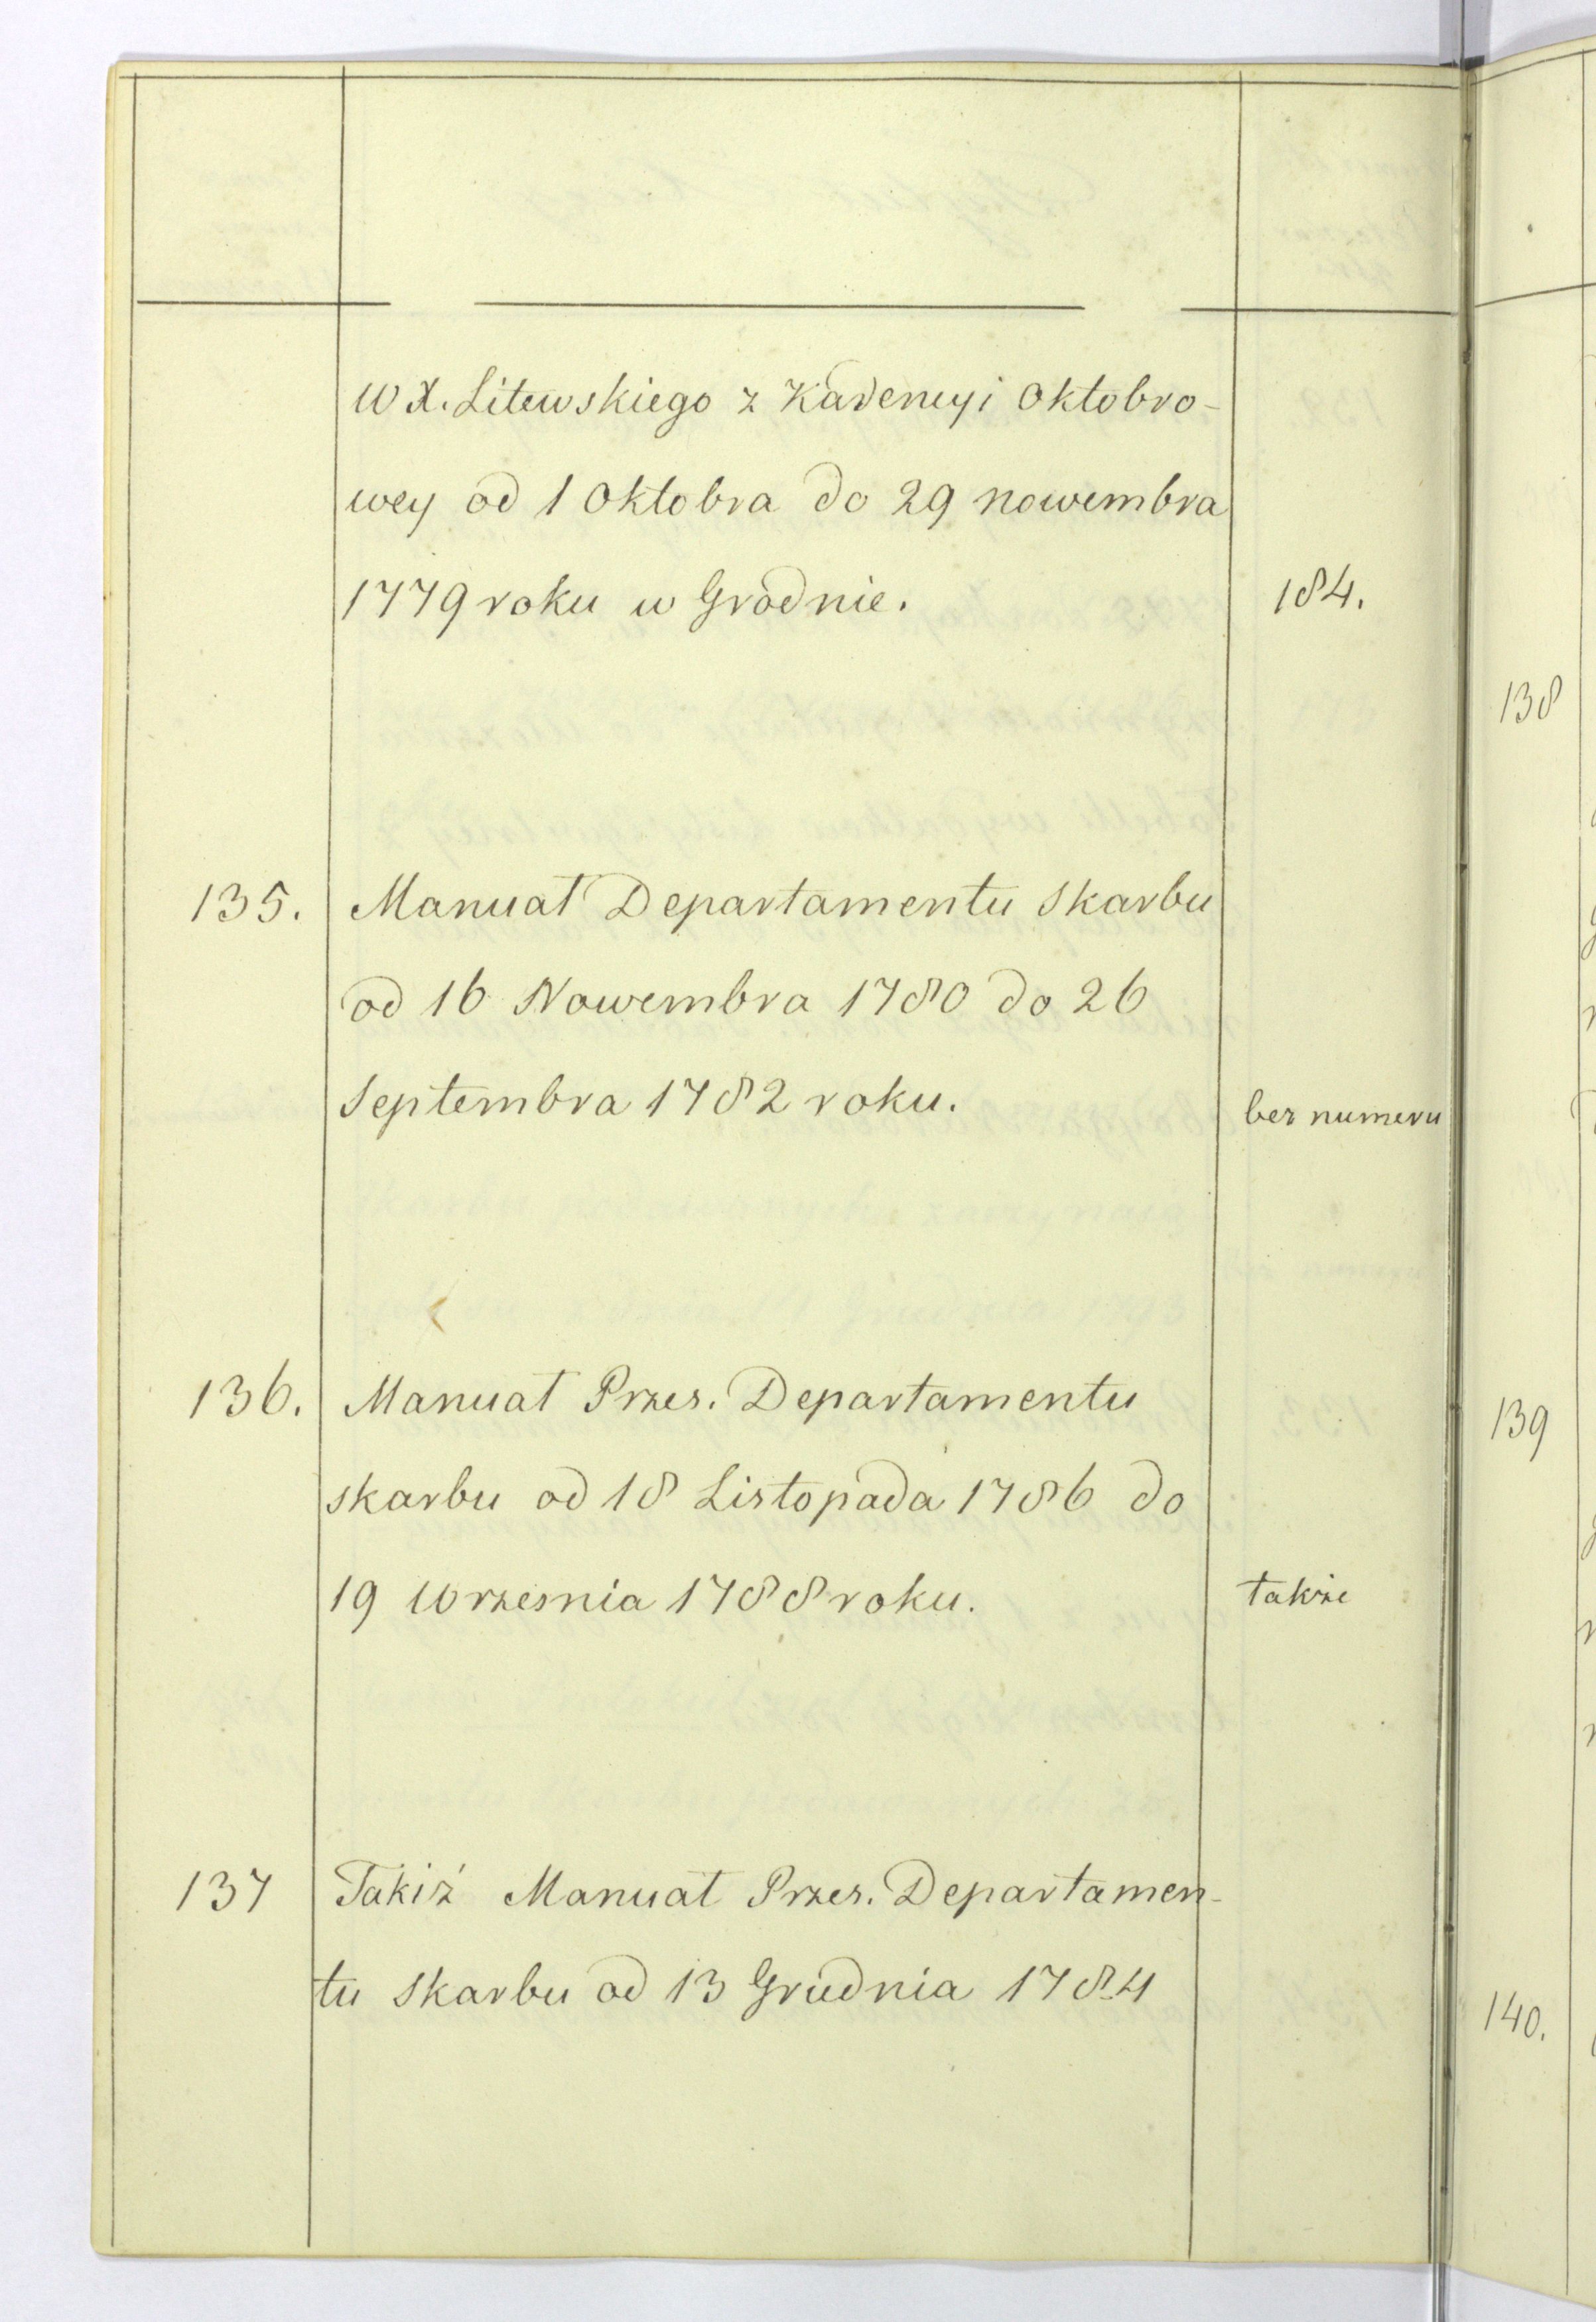 WX. Litewskiego z Kadencyi Oktobro-
wey od 1 Oktobra do 29 nowembra
1779 roku w Grodnie. 184.
135. Manuał Departamentu Skarbu
od 16 Nowembra 1780 do 26
Septembra 1782 roku. bez numeru
136. Manuał Przes. Departamentu
skarbu od 18 Listopada 1786 do
19 Wrzesnia 1788 roku. także
137 Takiż Manuał Przes. Departamen-
tu Skarbu od 13 Grudnia 1784
138
139
140.